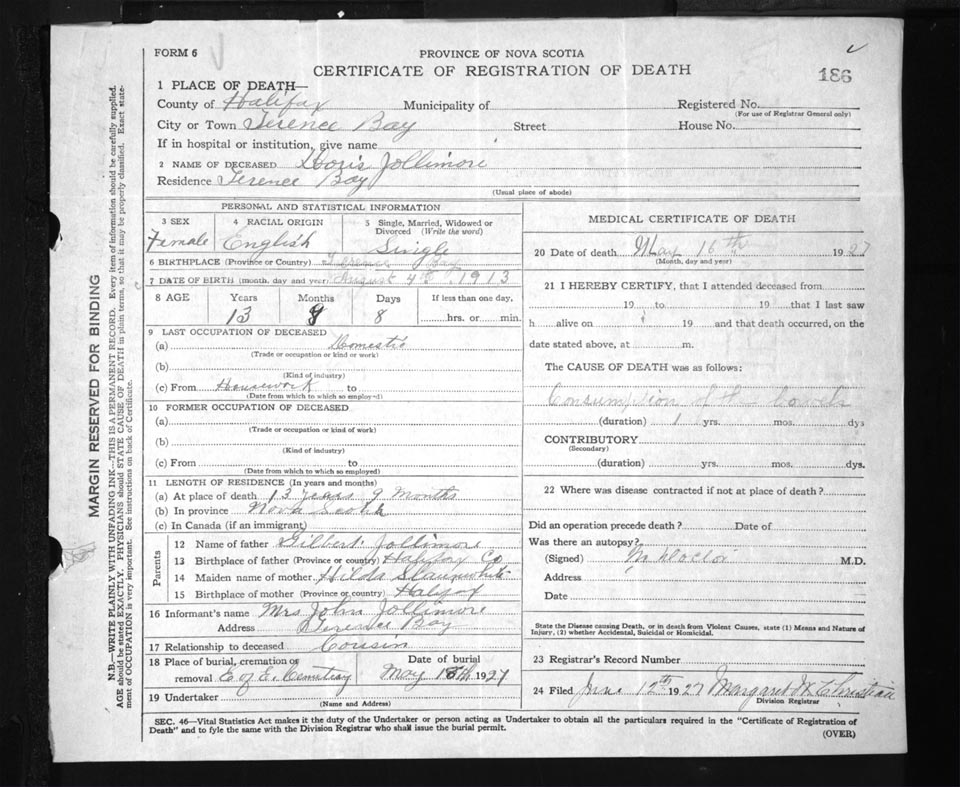 FORM 6
PROVINCE OF NOVA SCOTIA
CERTIFICATE OF REGISTRATION OF DEATH
186
MARGIN RESERVED FOR BINDING
N.B.—WRITE PLAINLY WITH UNFADING INK—THIS IS A PERMANENT RECORD. Every item of information should be carefully supplied.
AGE should be stated EXACTLY. PHYSICIANS should STATE CAUSE OF DEATH in plain terms, so that it may be properly classified. Exact statement of OCCUPATION is very important. See instructions on back of Certificate.
1 PLACE OF DEATH—
County of Halifax Municipality of Registered No.
(For use of Registrar General only)
City or Town Terence Bay Street House No.
If in hospital or institution, give name
2 NAME OF DECEASED Doris Jollimore
Residence Terence Bay
(Usual place of abode)
PERSONAL AND STATISTICAL INFORMATION
3 SEX 4 RACIAL ORIGIN 5 Single, Married, Widowed or Divorced (Write the word)
Female English Single
6 BIRTHPLACE (Province or Country) Terence Bay
7 DATE OF BIRTH (month, day and year) August 4th 1913
8 AGE Years Months Days If less than one day,
13 9 8 hrs. or min.
9 LAST OCCUPATION OF DECEASED
(a) Domestic
(Trade or occupation or kind or work)
(b)
(Kind of industry)
(c) From Housework to
(Date from which to which so employed)
10 FORMER OCCUPATION OF DECEASED
(a)
(Trade or occupation or kind of work)
(b)
(Kind of industry)
(c) From to
(Date from which to which so employed)
11 LENGTH OF RESIDENCE (In years and months)
(a) At place of death 13 years 9 Months
(b) In province Nova Scotia
(c) In Canada (if an immigrant)
Parents
12 Name of father Gilbert Jollimore
13 Birthplace of father (Province or country) Halifax Co
14 Maiden name of mother Hilda Slaunwhite
15 Birthplace of mother (Province or country) Halifax
16 Informant's name Mrs John Jollimore
Address Terence Bay
17 Relationship to deceased Cousin
18 Place of burial, cremation or removal C of E. Cemetery Date of burial May 18th 1927
19 Undertaker
(Name and Address)
MEDICAL CERTIFICATE OF DEATH
20 Date of death May 16th 1927
(Month, day and year)
21 I HEREBY CERTIFY, that I attended deceased from
19 to 19 that I last saw
h alive on 19 and that death occurred, on the
date stated above, at m.
The CAUSE OF DEATH was as follows:
Consumption of the bowels
(duration) 1 yrs. mos. dys
CONTRIBUTORY
(Secondary)
(duration) yrs. mos. dys.
22 Where was disease contracted if not at place of death?
Did an operation precede death? Date of
Was there an autopsy?
(Signed) No doctor M.D.
Address
Date
State the Disease causing Death, or in death from Violent Causes, state (1) Means and Nature of
Injury, (2) whether Accidental, Suicidal or Homicidal.
23 Registrar's Record Number
24 Filed 12th 1927 Margaret Christian
Division Registrar
SEC. 46—Vital Statistics Act makes it the duty of the Undertaker or person acting as Undertaker to obtain all the particulars required in the "Certificate of Registration of
Death" and to fyle the same with the Division Registrar who shall issue the burial permit.
(OVER)